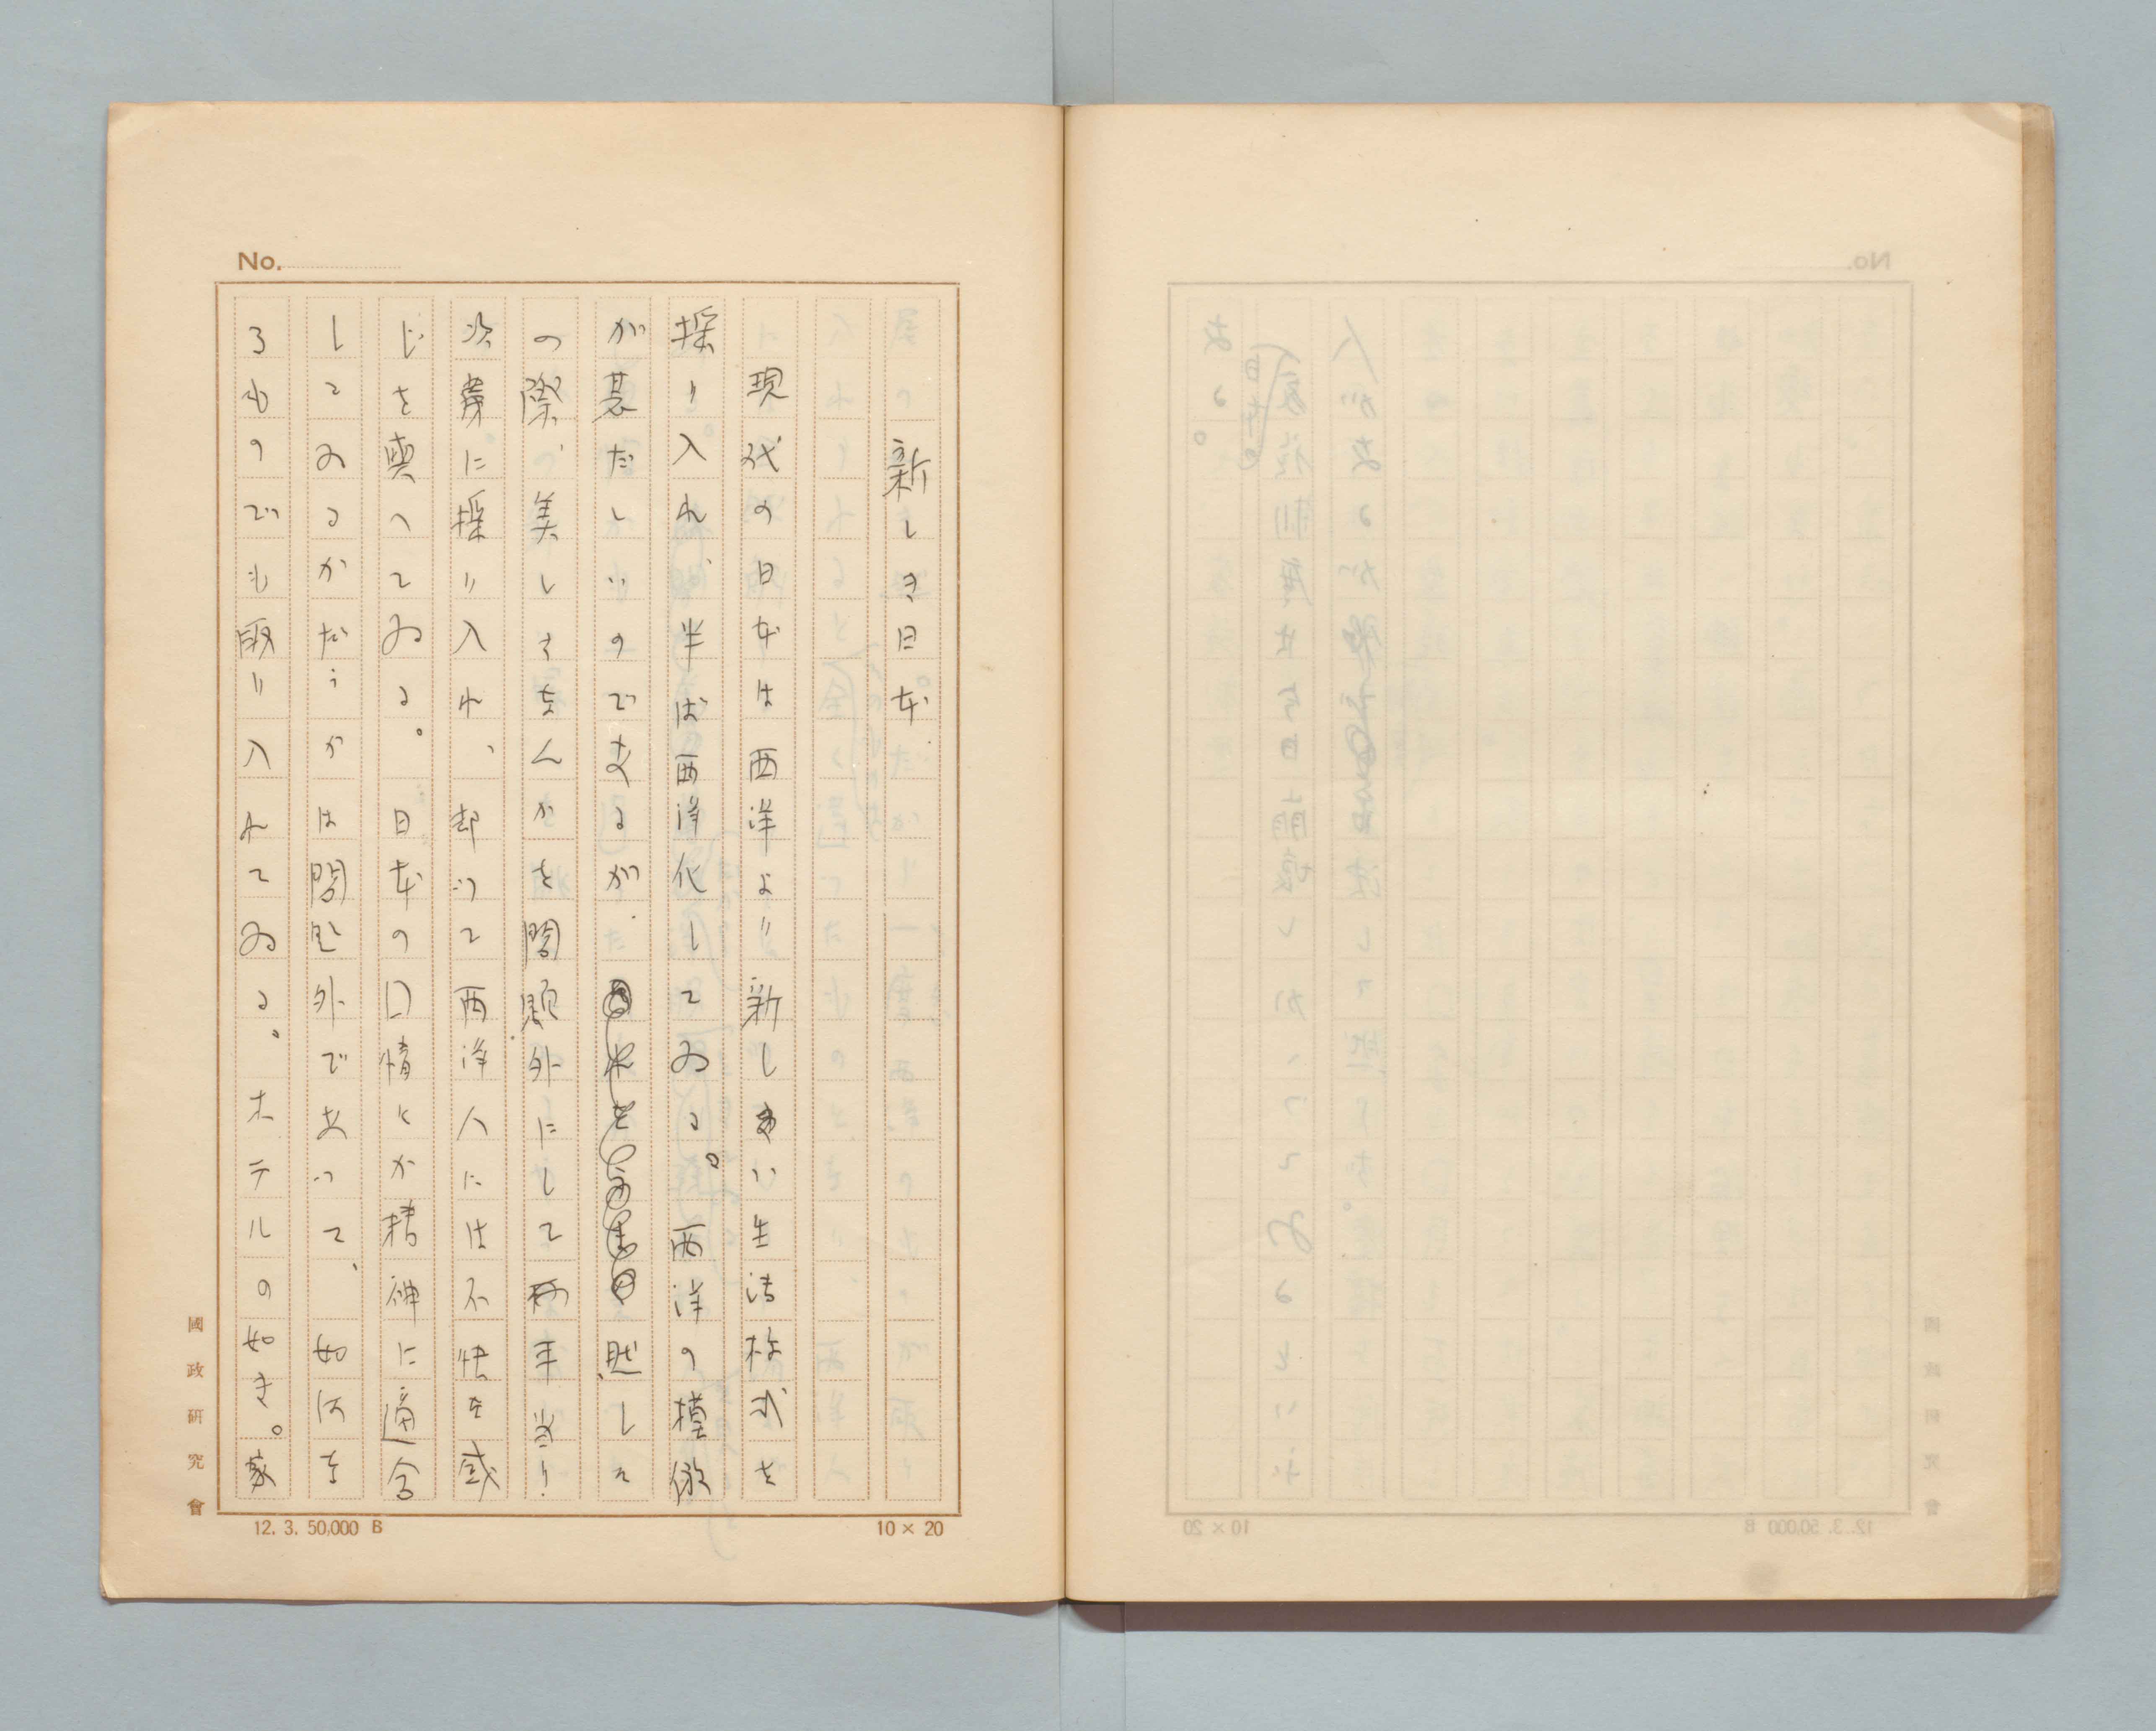 No.
新しき日本
現代の日本は西洋より新しい生活様式を
採り入れ、半ば西洋化してゐる。西洋の模倣
が甚だしいのであるが、然しそ
の際、美しさなんかを問題外にして手当り
次第に採り入れ、却つて西洋人には不快を感
じを與へてゐる。日本の囗情とか精神に適合
してゐるかだうかは問題外であつて、如何な
るものでも取り入れてゐる。ホテルの如き。家
國政研究會
12. 3. 50,000 B
10 × 20